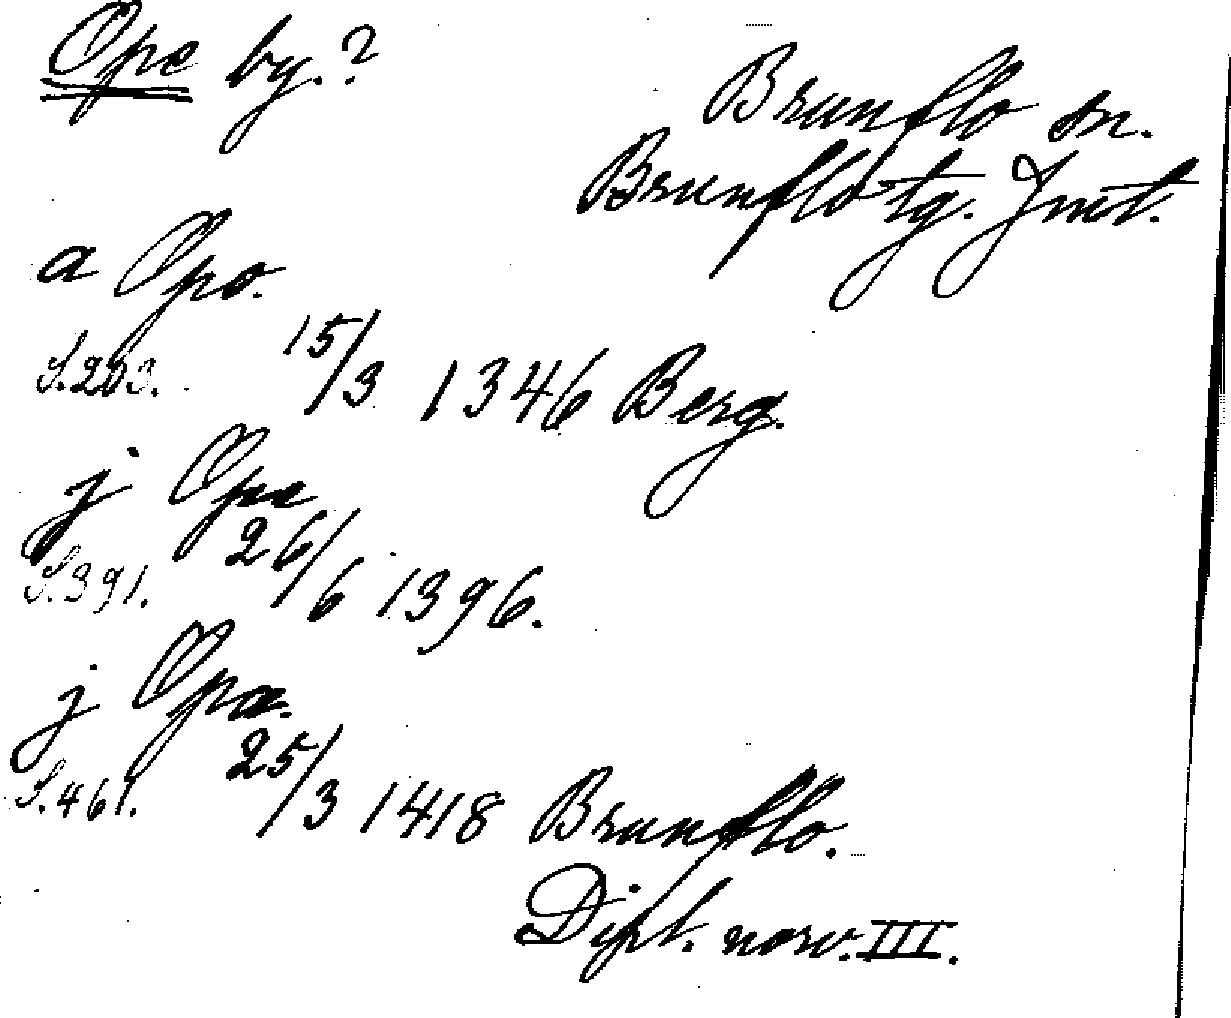 Ope by.?
Brunflo sn.
Brunflo tg. Jmt.
a Opo.
S.203. 15/3 1346 Berg.
j Ope
S.391. 26/6 1396.
j Opa.
S.461. 25/3 1418 Brunflo.
Dipl. norv. III.